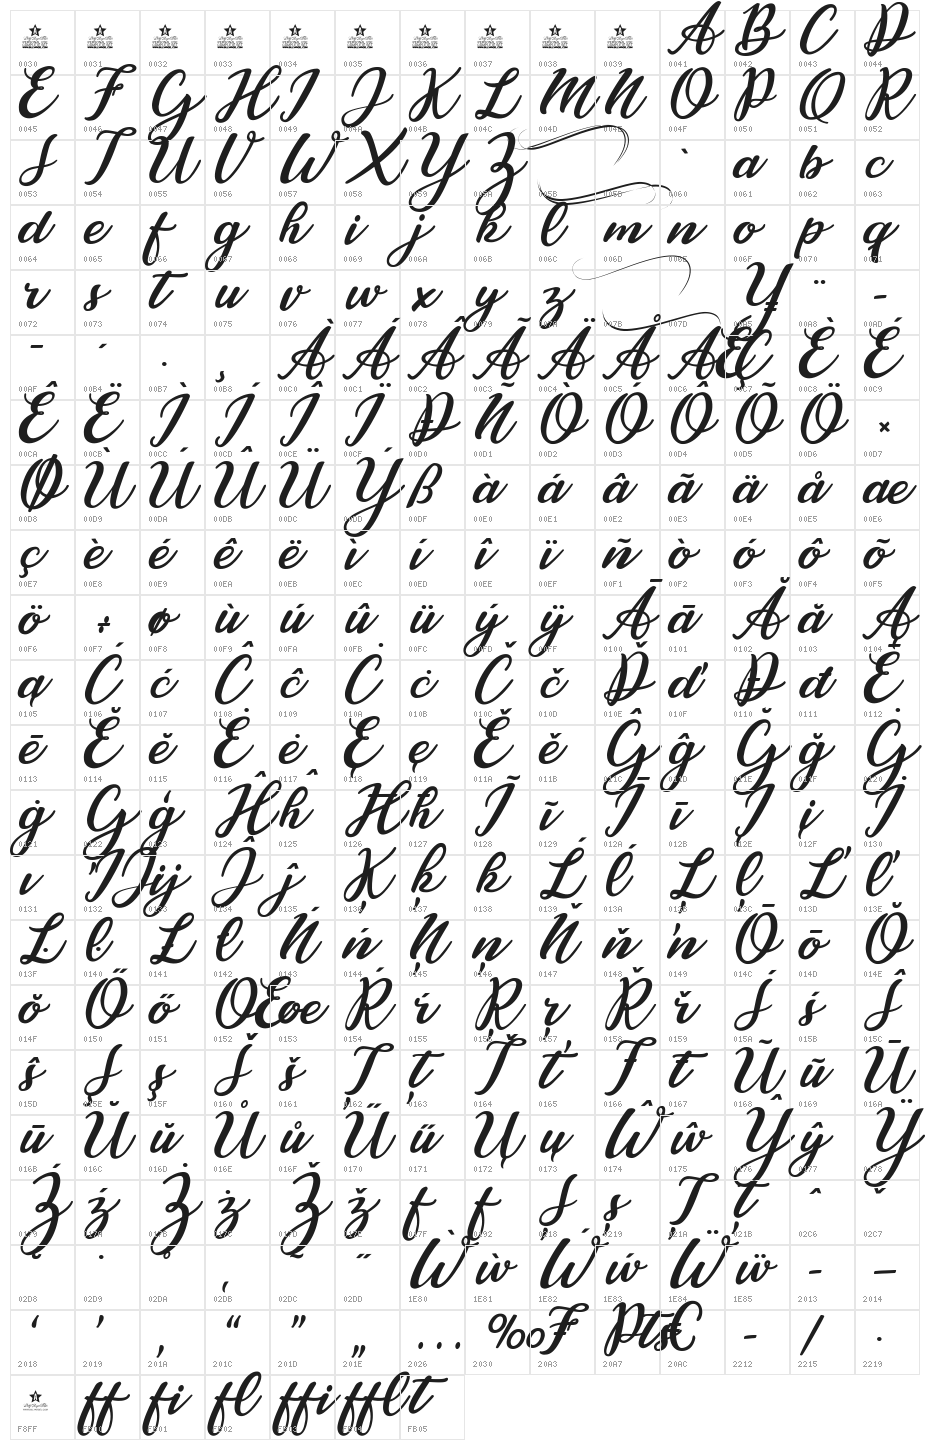 A B C D
0030 0031 0032 0033 0034 0035 0036 0037 0038 0039 0041 0042 0043 0044
E F G H I J K L M N O P Q R
0045 0046 0047 0048 0049 004A 004B 004C 004D 004E 004F 0050 0051 0052
S T U V W X Y Z ` a b c
0053 0054 0055 0056 0057 0058 0059 005A 005B 0060 0061 0062 0063
d e f g h i j k l m n o p q
0064 0065 0066 0067 0068 0069 006A 006B 006C 006D 006E 006F 0070 0071
r s t u v w x y z ¥ ¨ -
0072 0073 0074 0075 0076 0077 0078 0079 007A 007B 007D 00A5 00A8 00AD
¯ ´ · ¸ À Á Â Ã Ä Å Æ Ç È É
00AF 00B4 00B7 00B8 00C0 00C1 00C2 00C3 00C4 00C5 00C6 00C7 00C8 00C9
Ê Ë Ì Í Î Ï Ð Ñ Ò Ó Ô Õ Ö ×
00CA 00CB 00CC 00CD 00CE 00CF 00D0 00D1 00D2 00D3 00D4 00D5 00D6 00D7
Ø Ù Ú Û Ü Ý ß à á â ã ä å æ
00D8 00D9 00DA 00DB 00DC 00DD 00DF 00E0 00E1 00E2 00E3 00E4 00E5 00E6
ç è é ê ë ì í î ï ñ ò ó ô õ
00E7 00E8 00E9 00EA 00EB 00EC 00ED 00EE 00EF 00F1 00F2 00F3 00F4 00F5
ö ÷ ø ù ú û ü ý ÿ Ā ā Ă ă Ą
00F6 00F7 00F8 00F9 00FA 00FB 00FC 00FD 00FF 0100 0101 0102 0103 0104
ą Ć ć Ĉ ĉ Ċ ċ Č č Ď ď Đ đ Ē
0105 0106 0107 0108 0109 010A 010B 010C 010D 010E 010F 0110 0111 0112
ē Ĕ ĕ Ė ė Ę ę Ě ě Ĝ ĝ Ğ ğ Ġ
0113 0114 0115 0116 0117 0118 0119 011A 011B 011C 011D 011E 011F 0120
ġ Ģ ģ Ĥ ĥ Ħ ħ Ĩ ĩ Ī ī Į į İ
0121 0122 0123 0124 0125 0126 0127 0128 0129 012A 012B 012E 012F 0130
ı IJ ij Ĵ ĵ Ķ ķ ĸ Ĺ ĺ Ļ ļ Ľ ľ
0131 0132 0133 0134 0135 0136 0137 0138 0139 013A 013B 013C 013D 013E
Ŀ ŀ Ł ł Ń ń Ņ ņ Ň ň ŉ Ō ō Ŏ
013F 0140 0141 0142 0143 0144 0145 0146 0147 0148 0149 014C 014D 014E
ŏ Ő ő Œ œ Ŕ ŕ Ŗ ŗ Ř ř Ś ś Ŝ
014F 0150 0151 0152 0153 0154 0155 0156 0157 0158 0159 015A 015B 015C
ŝ Ş ş Š š Ţ ţ Ť ť Ŧ ŧ Ũ ũ Ū
015D 015E 015F 0160 0161 0162 0163 0164 0165 0166 0167 0168 0169 016A
ū Ŭ ŭ Ů ů Ű ű Ų ų Ŵ ŵ Ŷ ŷ Ÿ
016B 016C 016D 016E 016F 0170 0171 0172 0173 0174 0175 0176 0177 0178
Ź ź Ż ż Ž ž ſ ƒ Ș ș Ț ț ˆ ˇ
0179 017A 017B 017C 017D 017E 017F 0192 0218 0219 021A 021B 02C6 02C7
˘ ˙ ˚ ˛ ˜ ˝ Ẁ ẁ Ẃ ẃ Ẅ ẅ – —
02D8 02D9 02DA 02DB 02DC 02DD 1E80 1E81 1E82 1E83 1E84 1E85 2013 2014
‘ ’ ‚ “ ” „ … ‰ ₣ ₧ € − ∕ ∙
2018 2019 201A 201C 201D 201E 2026 2030 20A3 20A7 20AC 2212 2215 2219
ff fi fl ffi ffl t
F8FF FB00 FB01 FB02 FB03 FB04 FB05